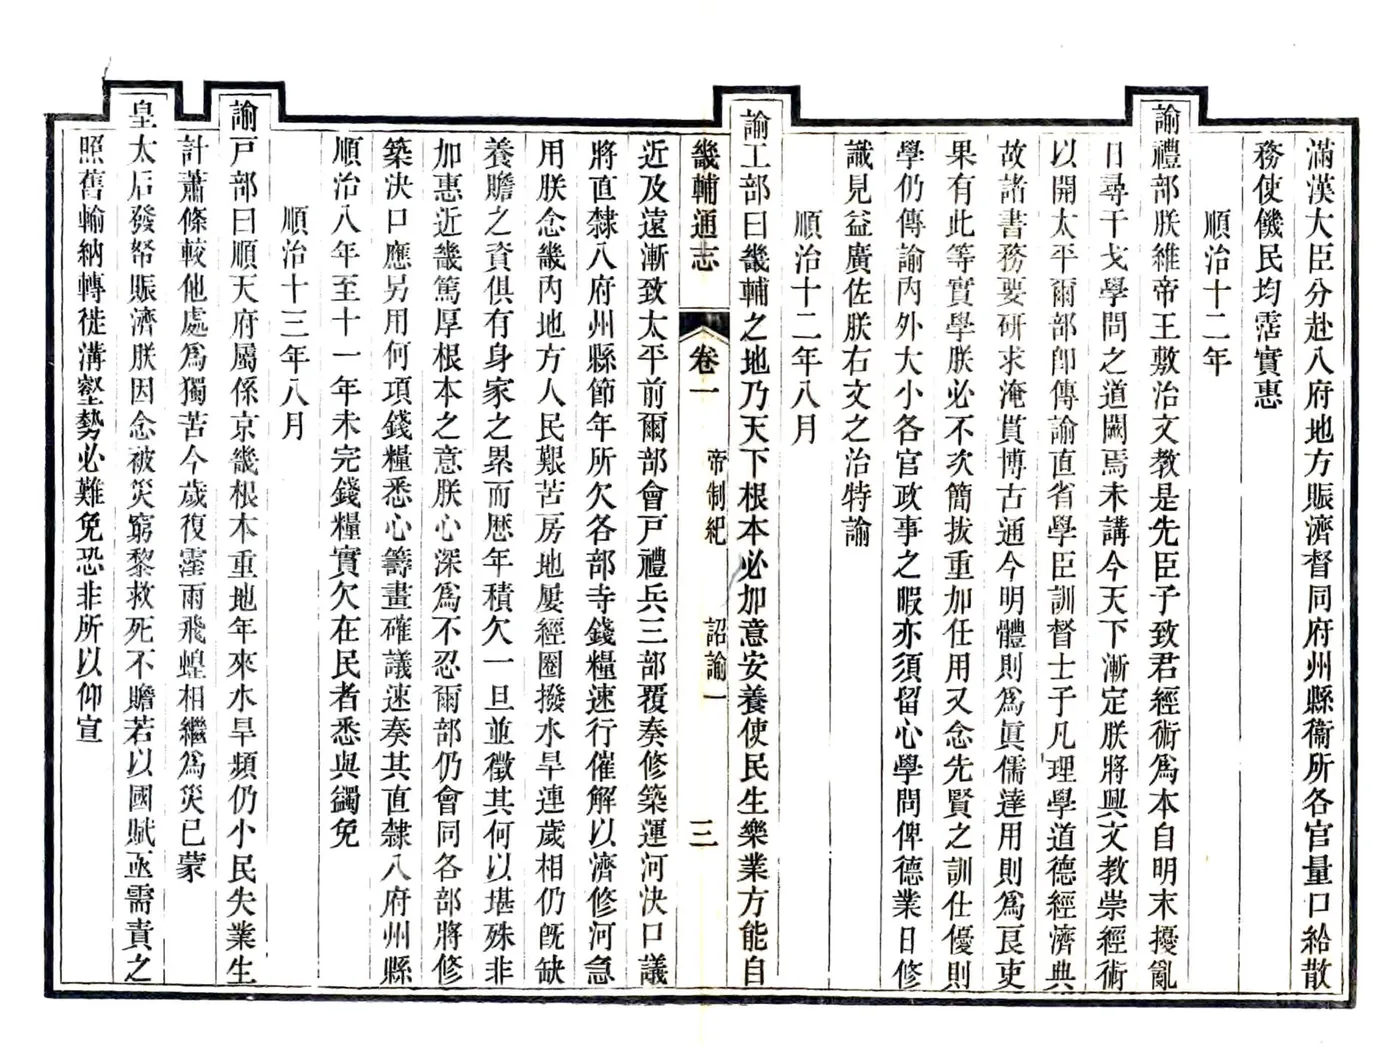 滿漢大臣分赴八府地方賑濟督同府州縣衞所各官量口給散
務使饑民均霑實惠
順治十二年
諭禮部朕維帝王敷治文教是先臣子致君經術爲本自明末擾亂
日尋干戈學問之道闕焉未講今天下漸定朕將興文教崇經術
以開太平爾部卽傳諭直省學臣訓督士子凡理學道德經濟典
故諸書務要研求淹貫博古通今明體則爲眞儒達用則爲良吏
果有此等實學朕必不次簡拔重加任用又念先賢之訓仕優則
學仍傳諭內外大小各官政事之暇亦須留心學問俾德業日修
識見益廣佐朕右文之治特諭
順治十二年八月
諭工部曰畿輔之地乃天下根本必加意安養使民生樂業方能自
畿輔通志 卷一 帝制紀 詔諭一 三
近及遠漸致太平前爾部會戸禮兵三部覆奏修築運河決口議
將直隸八府州縣節年所欠各部寺錢糧速行催解以濟修河急
用朕念畿內地方人民艱苦房地屢經圈撥水旱連歲相仍旣缺
養贍之資俱有身家之累而歷年積欠一旦並徵其何以堪殊非
加惠近畿篤厚根本之意朕心深爲不忍爾部仍會同各部將修
築決口應另用何項錢糧悉心籌畫確議速奏其直隸八府州縣
順治八年至十一年未完錢糧實欠在民者悉與蠲免
順治十三年八月
諭戸部曰順天府屬係京畿根本重地年來水旱頻仍小民失業生
計蕭條較他處爲獨苦今歲復霪雨飛蝗相繼爲災已蒙
皇太后發帑賑濟朕因念被災窮黎救死不贍若以國賦亟需責之
照舊輸納轉徙溝壑勢必難免恐非所以仰宣